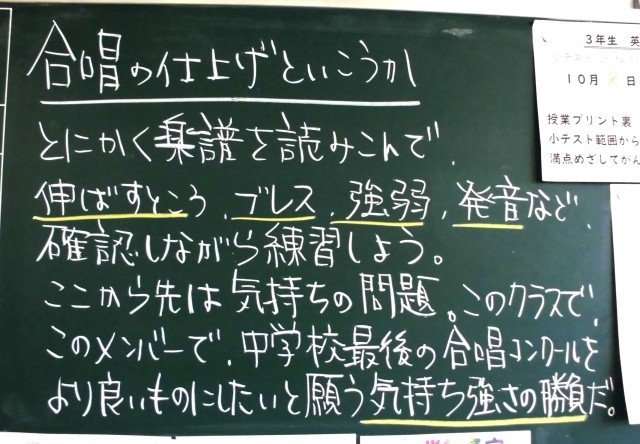 合唱の仕上げというかし
とにかく楽譜を読みこんで、
伸ばすところ、ブレス、強弱、発音など
確認しながら練習しよう。
ここから先は気持ちの問題。このクラスで、
このメンバーで、中学校最後の合唱コンクールを
より良いものにしたいと願う気持ち強さの勝負だ。
3年生 英
小テスト
10月 日
授業プリント裏
小テスト範囲から
満点めざしてがん